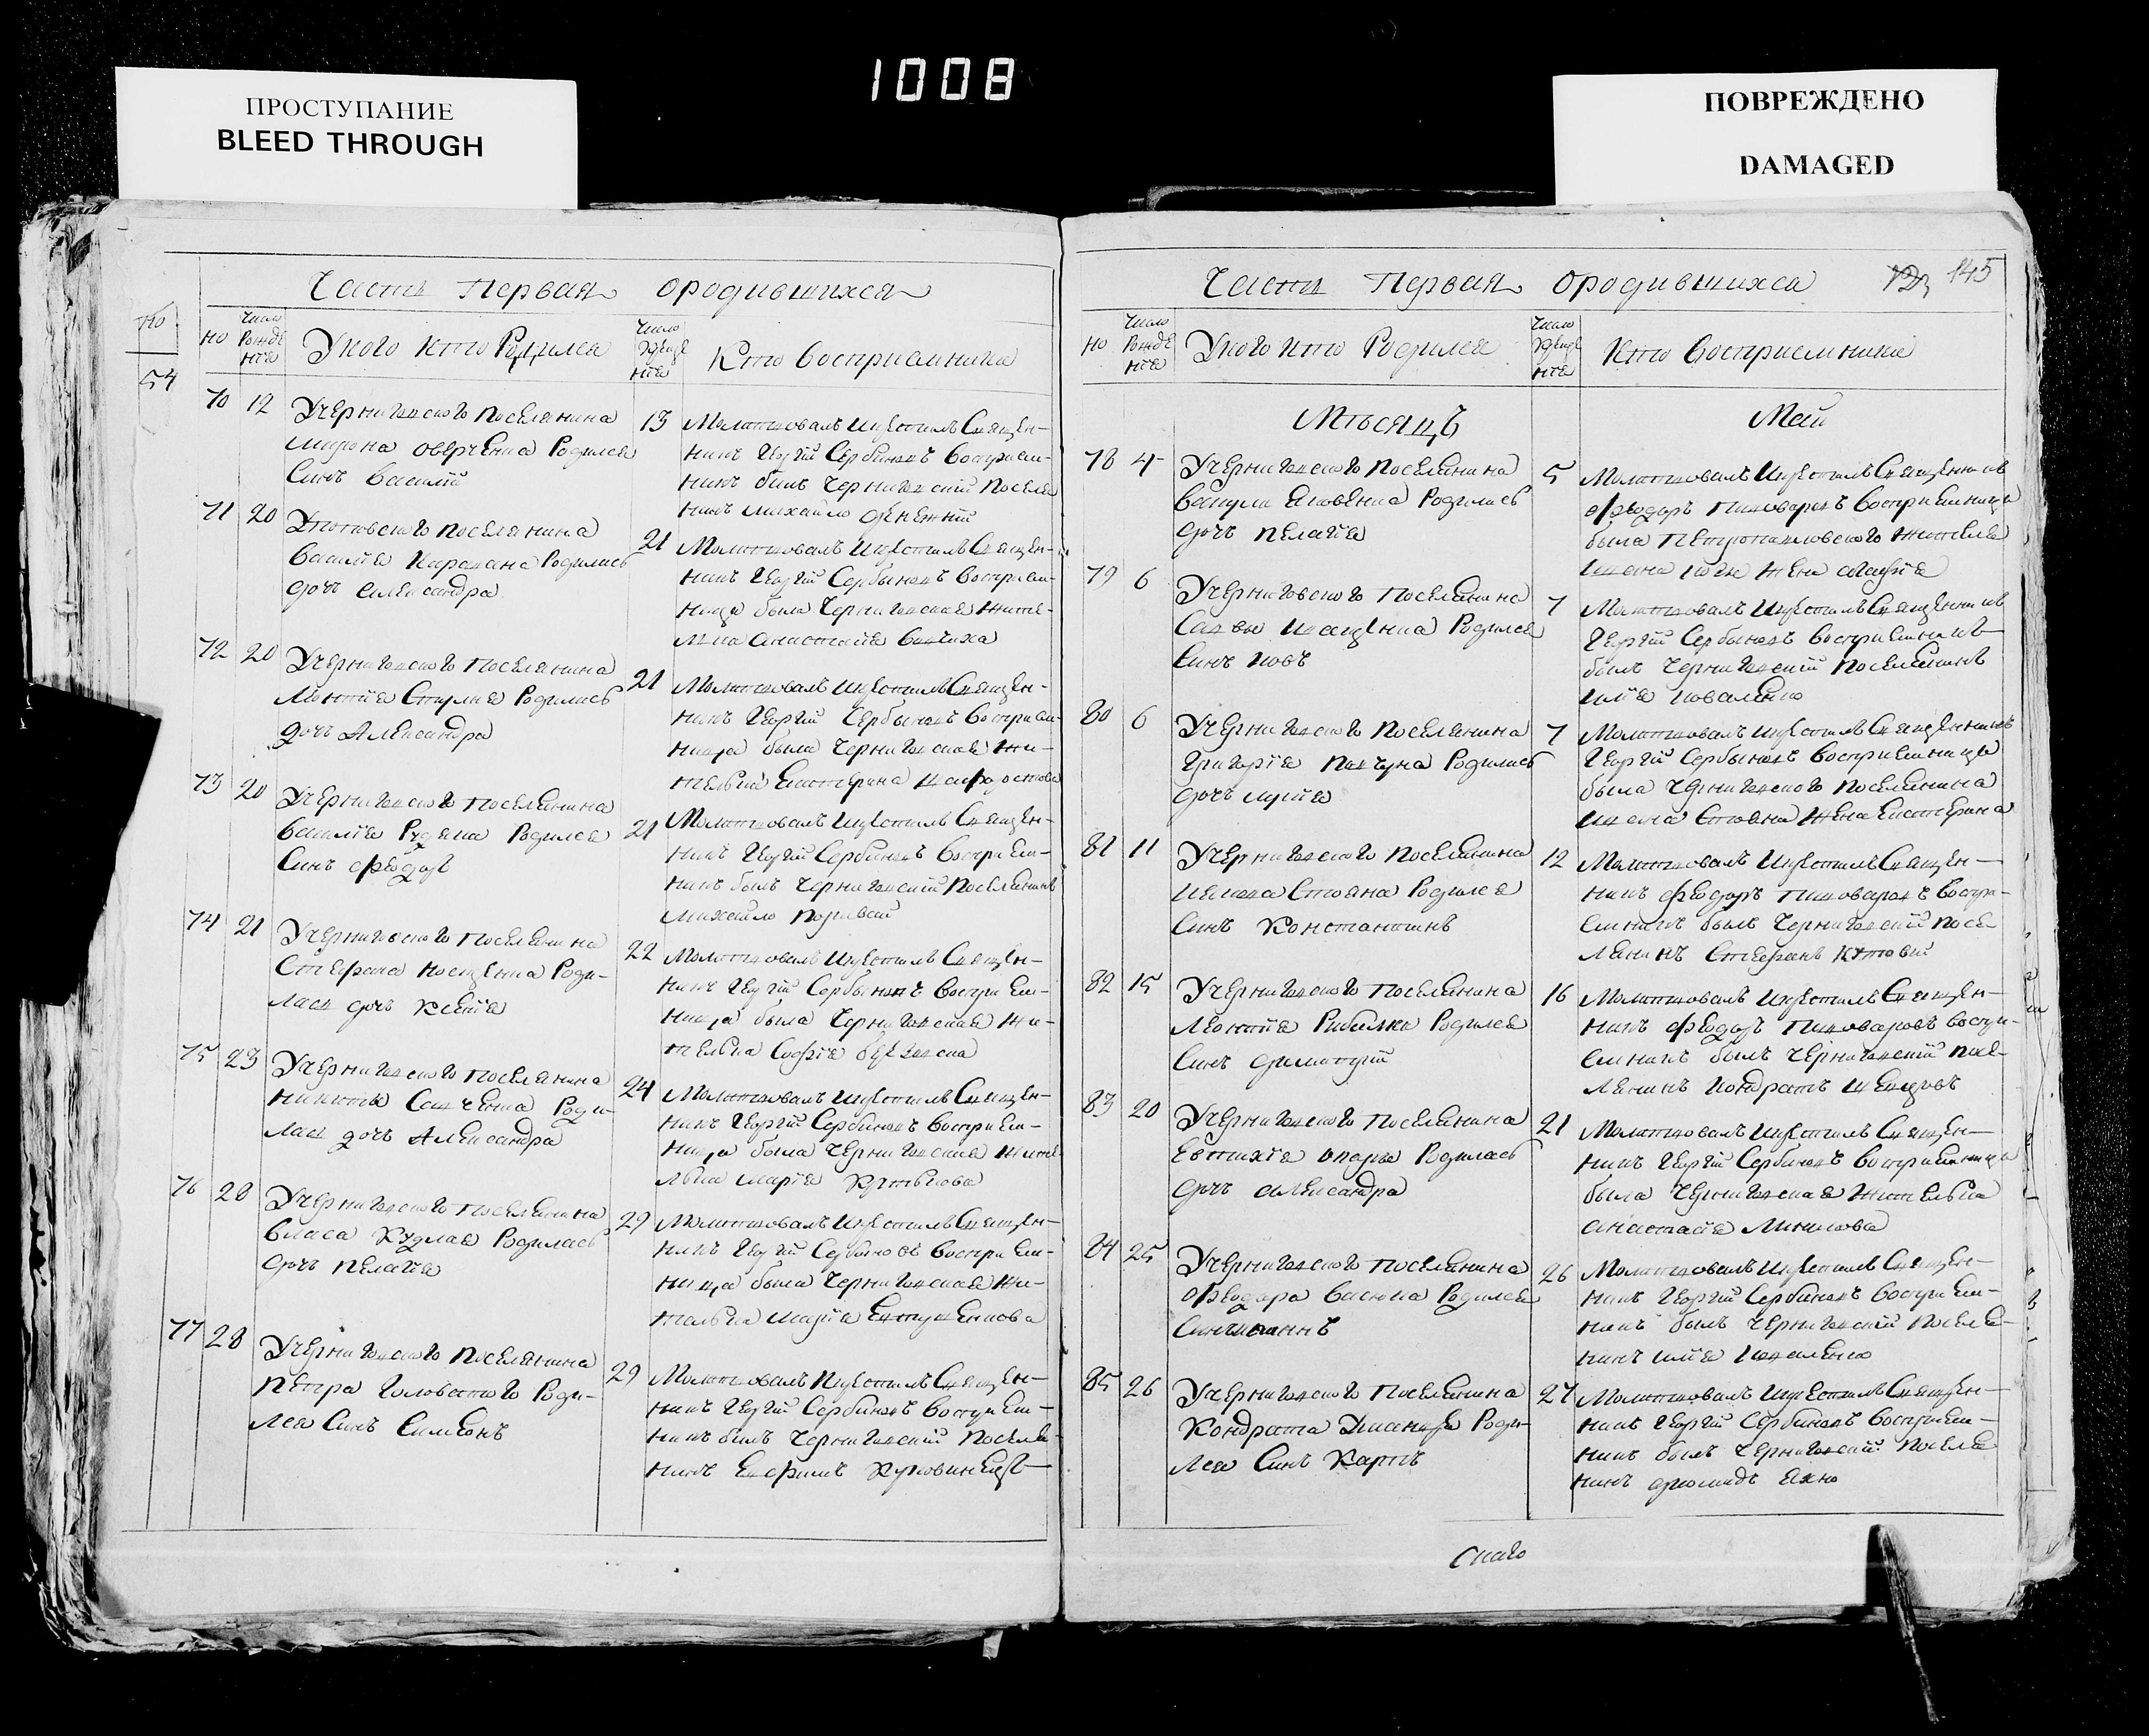 1008
ПРОСТУПАНИЕ
BLEED THROUGH
ПОВРЕЖДЕНО
DAMAGED
Часть Первая ородившихся
54
Но
Число Рожде нїѧ
Укого кто Родился
Число Креще нїя
Кто восприемники
70 12
Учерниговского поселянина
мирона оверченка Родился
Синъ василий
13
Молитвовалъ икрестилъ Священ-
никъ Георгий Сербиновъ восприем-
никъ билъ Черниговский поселя
нинъ михайло
71 20
поселянина
василїя карамана Родилась
дочъ александра
21
Молитвовалъ икрестилъ Священ-
никъ Георгий Сербыновъ восприем-
ница была Черниговская жите-
лка анастасїя
72 20
Учерниговского поселянина
Родилась
дочъ Александра
21
Молитвовалъ икрестилъ Священ-
никъ Георгий Сербыновъ восприем-
ница была Черниговская жи-
телка екатерина
73 20
Учерниговского поселянина
василїя Рудяка Родился
Синъ феодоръ
21
Молитвовалъ икрестилъ Священ-
никъ Георгий Сербиновъ восприем-
никъ былъ Черниговский поселянинъ
михайло
74 21
Учерниговского поселянина
Стефана костенка Роди-
лась дочъ ксенїя
22
Молитвовалъ икрестилъ Священ-
никъ Георгий Сербыновъ восприем-
ница была Черниговская жи-
телка Софїя
75 23
Учерниговского поселянина
никиты Савченка Роди-
лась дочъ Александра
24
Молитвовалъ икрестилъ Священ-
никъ Георгий Сербиновъ восприем-
ница была Черниговская жите-
лка марїя
76 28
Учерниговского поселянина
власа кудлая Родилась
дочъ пелагїя
29
Молитвовалъ икрестилъ Священ-
никъ Георгий Сербыновъ восприем-
ница была Черниговская жи-
телка марїя Евтушенкова
77 28
Учерниговского поселянина
петра головатого Роди-
лся Синъ Симеонъ
29
Молитвовалъ икрестилъ Священ-
никъ Георгий Сербиновъ восприем-
никъ билъ Черниговский поселя-
нинъ Евфимъ
Часть Первая ородившихся
145
Но
Число Рожде нїя
Укого кто Родился
Число Креще нїя
Кто восприемники
Мѣсяцъ Май
78 4
Учерниговского поселянина
вакули яковенка Родилась
дочъ пелагїя
5
Молитвовалъ икрестилъ Священникъ
феодоръ пивоваровъ восприемница
была петропавловского жителя
жена агафїя
79 6
Учерниговского поселянина
Саввы иващенка Родился
Синъ иовъ
7
Молитвовалъ икрестилъ Священникъ
Георгий Сербыновъ восприемникъ
былъ Черниговский поселянинъ
илїя коваленко
80 6
Учерниговского поселянина
григорїя Родилась
дочъ
7
Молитвовалъ икрестилъ Священникъ
Георгий Сербыновъ восприемница
была черниговского поселянина
Стояна жена екатерина
81 11
Учерниговского поселянина
Стояна Родился
Синъ Константинъ
12
Молитвовалъ икрестилъ Священ-
никъ феодоръ пивоваровъ воспри-
емникъ былъ Черниговский посе-
лянинъ Стефанъ кутовый
82 15
Учерниговского поселянина
леонтїя Рибалки Родился
Синъ димитрий
16
Молитвовалъ икрестилъ Священ-
никъ феодоръ пивоваровъ воспри-
емникъ былъ черниговский посе-
лянинъ кондратъ
83 20
Учерниговского поселянина
Евтихїя Родилась
дочъ александра
21
Молитвовалъ икрестилъ Священ-
никъ Георгий Сербиновъ восприемница
была черниговская жителка
анастасїя
84 25
Учерниговского поселянина
феодора васюка Родился
Синъ
26
Молитвовалъ икрестилъ Священ-
никъ Георгий Сербиновъ восприем-
никъ былъ Черниговский поселя-
нинъ илїя коваленко
85 26
Учерниговского поселянина
Кондрата Роди-
лся Синъ Карпъ
27
Молитвовалъ икрестилъ Священ-
никъ Георгий Сербиновъ восприем-
никъ былъ Черниговский поселя
нинъ